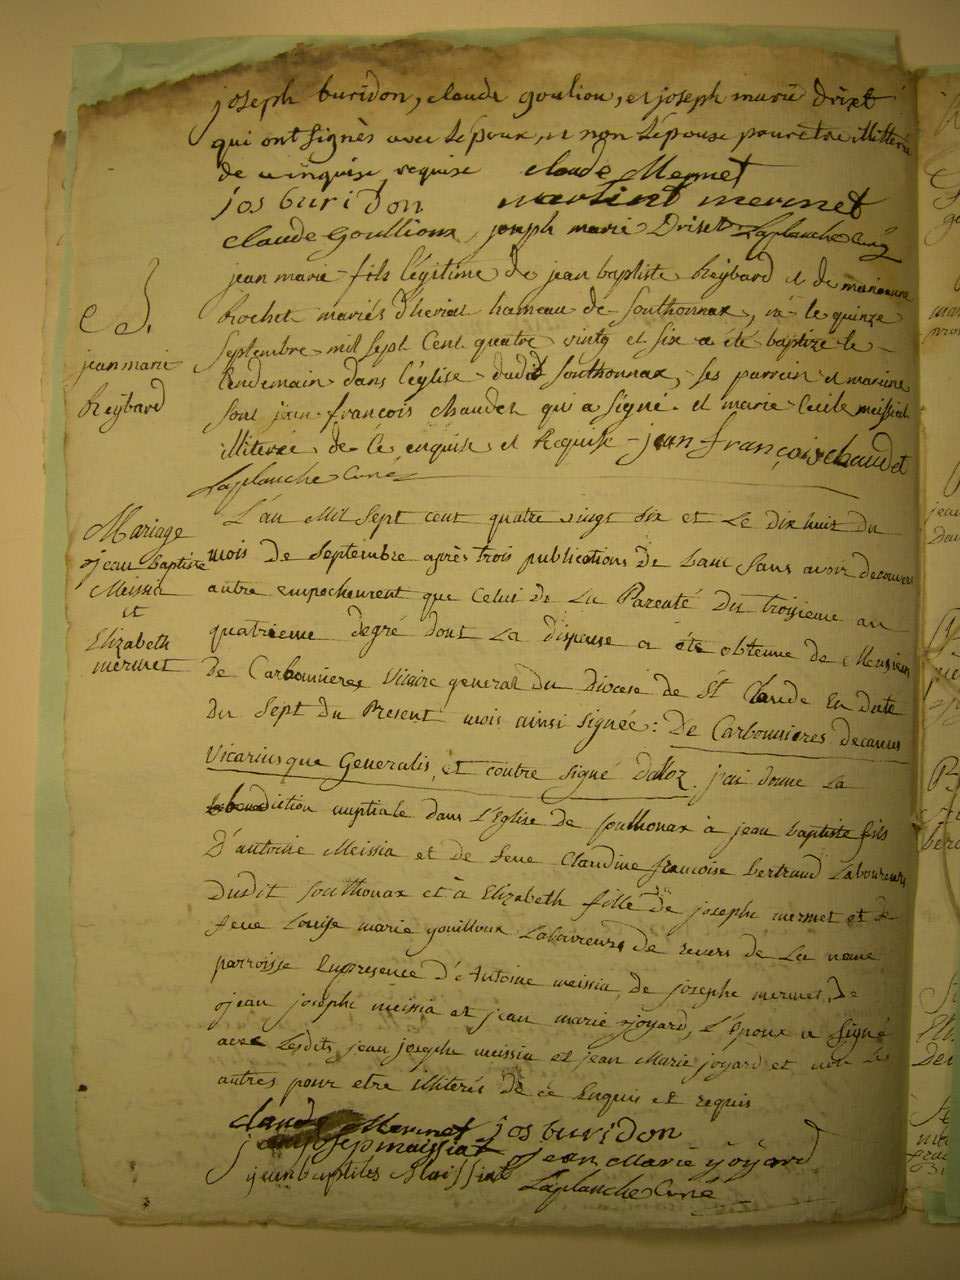 joseph buridon, claude goulion, et joseph marie Driset
qui ont signès avec l'époux, et non l'épouse pour être illitérée
de ce inquise requise claude Mermet
jos buridon martint mermet
claude Goullioux, joseph marie Driset Laplanche Curé
jean marie fils légitime de jean baptiste Reybard et de marianne
Rochet mariés d'heriat hameau de Southonnax, né le quinze
septembre mil sept Cent quatre vingt et six a été baptizé le
Lendemain dans l'église dudit Southonnax, ses parrein et maraine
sont jean françois chaudet qui a signé et marie Cecile meissiat
illiterée de Ce enquise et Requise jean françois chaudet
Laplanche Curé
jean marie
Reybard
L'an Mil Sept cent quatre vingt six et Le dix huit du
mois de Septembre après trois publications de Banc Sans avoir decouvert
autre empechement que Celui de La Parenté Du troisieme au
quatrieme degré dont La dispense a été obtenue de Monsieur
De Carbonnieres Vicaire general du Diocese de St Claude En date
Du Sept du Present mois ainsi signée: De Carbonnieres decanus
Vicarius que Generalis, et contre signé Dalloz j'ai donné La
benediction nuptiale dans L'Eglise de Southonax à jean baptiste fils
D'antoine Meissia et de feue Claudine françoise Bertrand Laboureurs
Dudit Southonax et à Elizabeth fille de joseph mermet et de
feue Louise marie gouilloux Laboureurs de revers de La meme
parroisse En presence d'Antoine meissia, de joseph mermet, De
jean joseph meissia et jean marie joyard, L'Epoux a Signé
avec Lesdits jean joseph meissia et jean Marie joyard et non Les
autres pour etre illiterés De ce Enquis et requis
Mariage
jean Baptiste
Meissia
et
Elizabeth
mermet
claude Mermet jos buridon
jean joseph maissiat jean Marie joyard
jean baptiste Maissiat Laplanche Curé